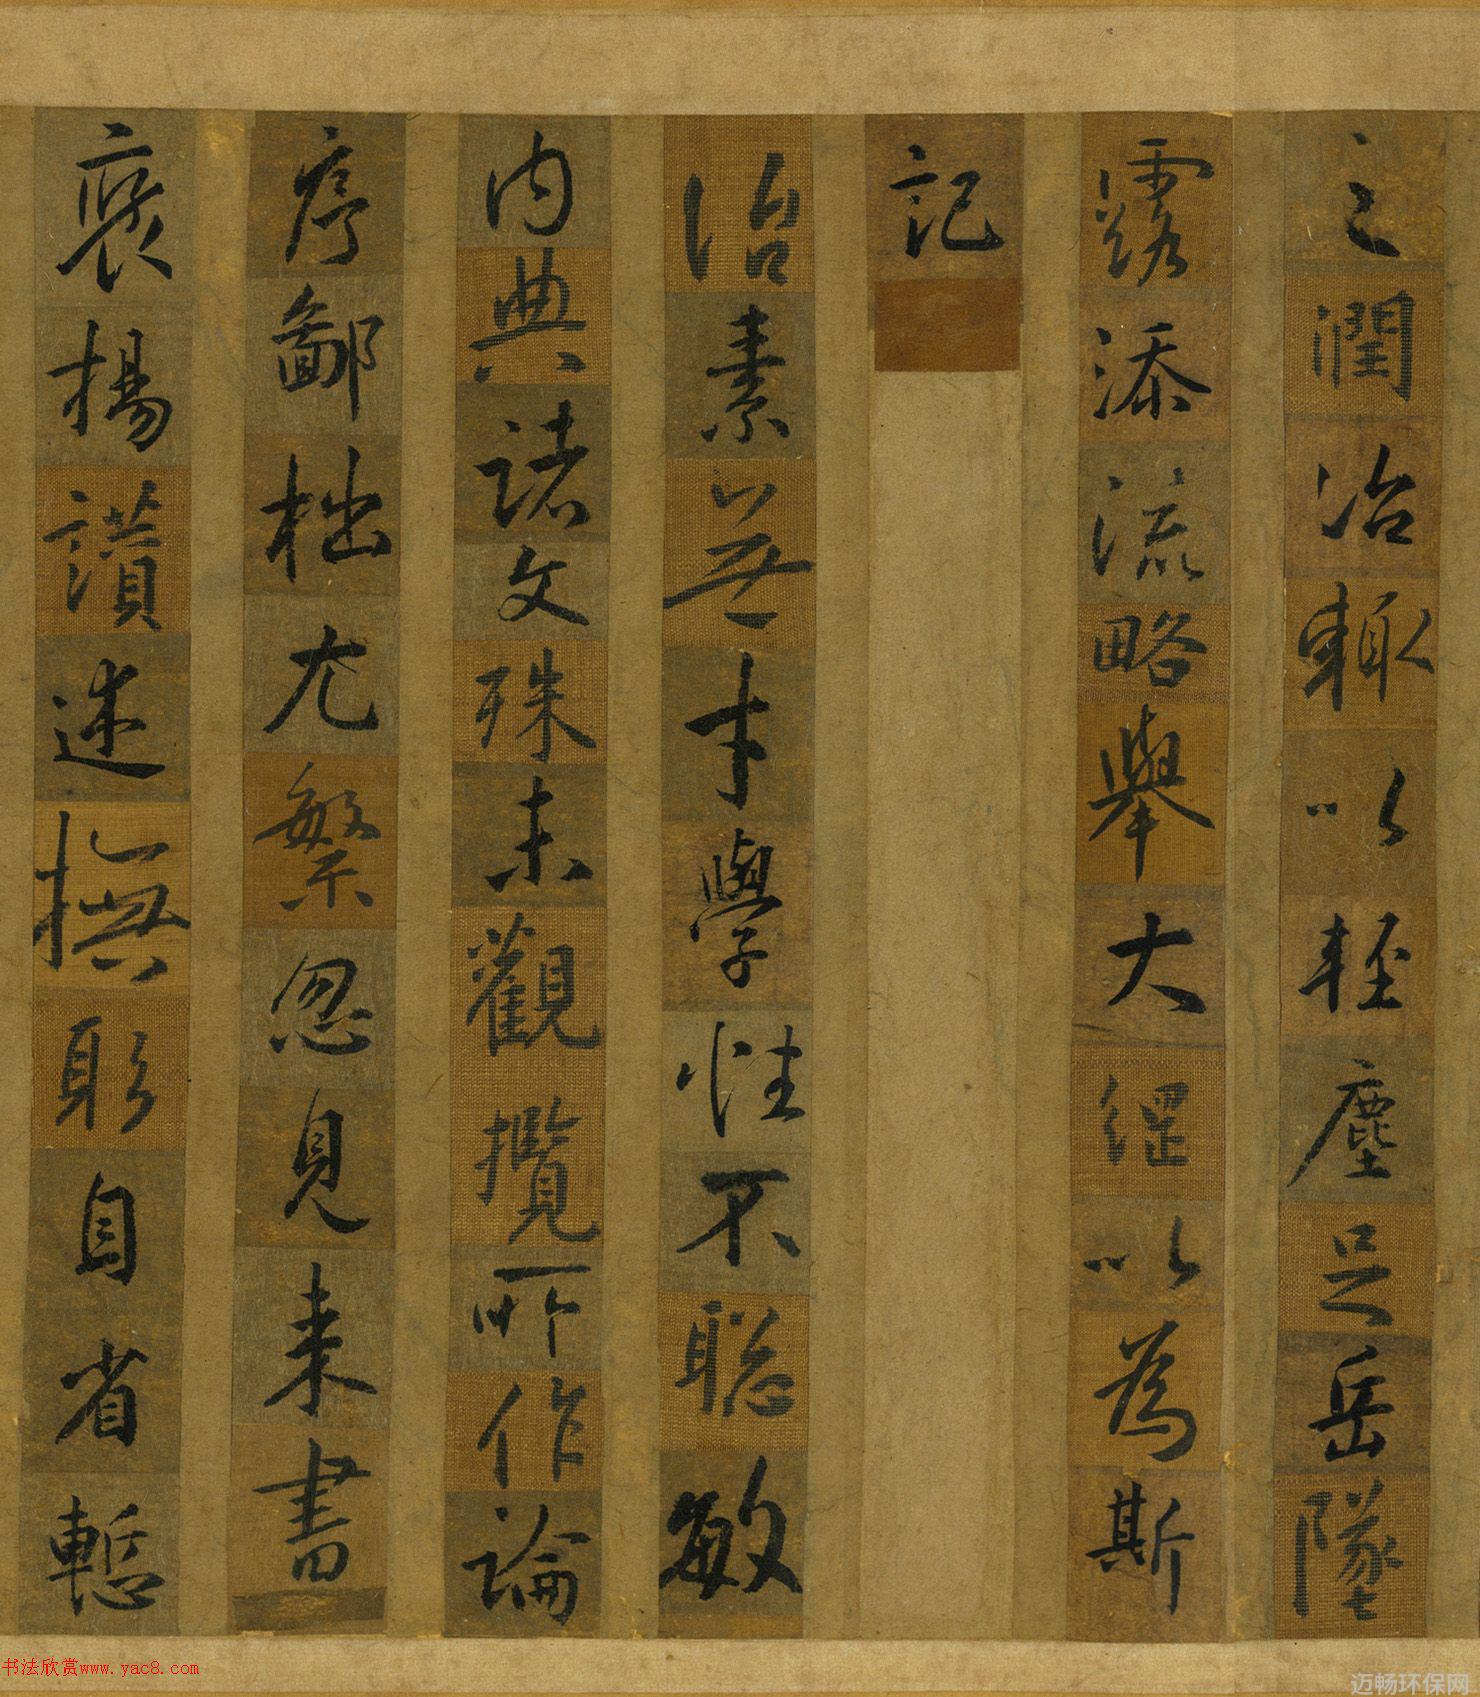 之潤冶輙以輕塵足岳墜
露添流略舉大綱以為斯
記
治素無才學性不聡敏
内典諸文殊未觀攬所作論
序鄙拙尤繁忽見来書
褒揚讃述撫躬自省慙
书法欣赏www.yac8.com
迈畅环保网